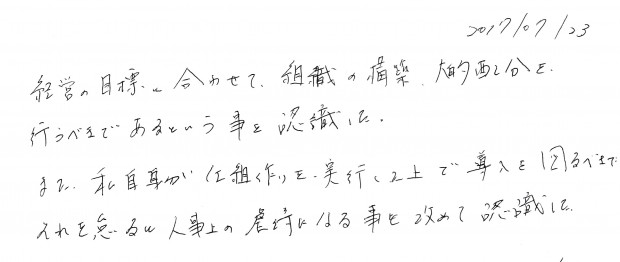 2017/07/23
経営の目標に合わせて、組織の構築、人的配分を
行うべきであるという事を認識した。
また、私自身が仕組作りを実行した上で導入を図るべきで
それを怠ると人事上の　になる事を改めて認識した